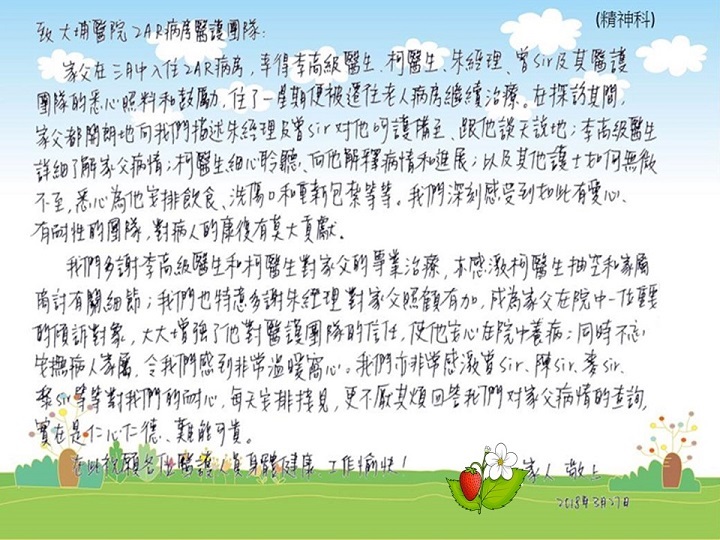 (精神科)
致 大埔醫院 2AR病房醫護團隊:
家父在三月中入住2AR病房，幸得李高級醫生、柯醫生、朱經理、曾sir及其醫護
團隊的悉心照料和鼓勵，住了一星期便被遷往老人病房繼續治療。在探訪其間，
家父都開朗地向我們描述朱經理及曾sir對他呵護備至、跟他談天說地；李高級醫生
詳細了解家父病情；柯醫生細心聆聽、向他解釋病情和進展；以及其他護士如何無微
不至，悉心為他安排飲食、洗傷口和重新包紮等等。我們深刻感受到如此有愛心、
有耐性的團隊，對病人的康復有莫大貢獻。
我們多謝李高級醫生和柯醫生對家父的專業治療，亦感激柯醫生抽空和家屬
商討有關細節；我們也特意多謝朱經理對家父照顧有加，成為家父在院中一位重要
的傾訴對象，大大增強了他對醫護團隊的信任，使他安心在院中養病；同時不忘
安撫病人家屬，令我們感到非常溫暖窩心。我們亦非常感激曾sir、陳sir、麥sir、
黎sir等等對我們的耐心，每天安排接見，更不厭其煩回答我們對家父病情的查詢，
實在是仁心仁德、難能可貴。
在此祝願各位醫護人員身體健康 工作愉快！
家人 敬上
2018年3月27日